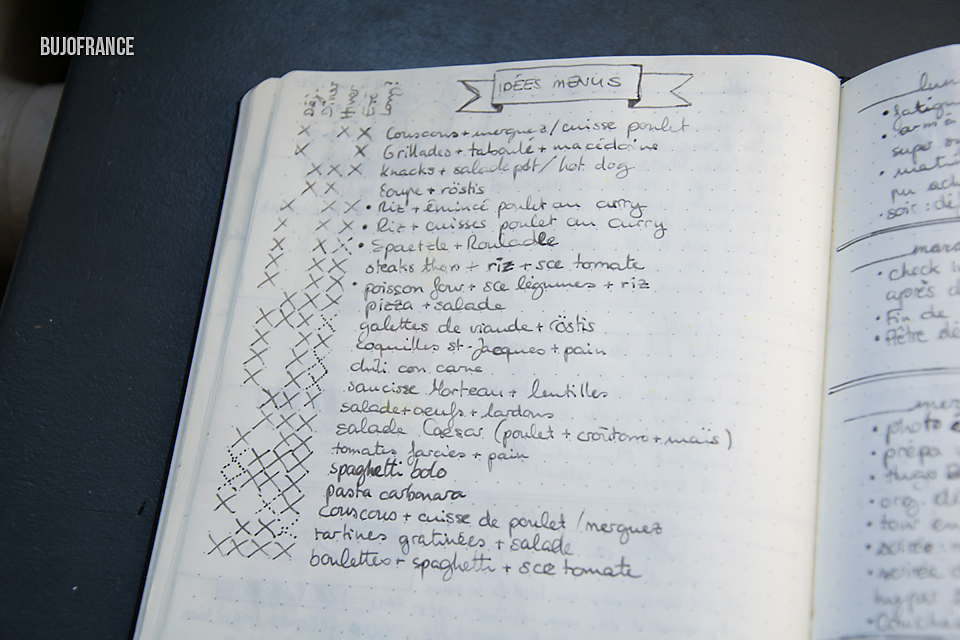 BUJOFRANCE
IDÉES MENUS
Déj
Dîner
Hiver
Eté
Long?
Couscous + merguez / cuisse poulet
Grillades + taboulé + macédoine
knacks + salade pdt / hot dog
soupe + röstis
• Riz + émincé poulet au curry
• Riz + cuisses poulet au curry
• Spaetzle + Roulade
steaks thon + riz + sce tomate
• poisson four + sce légumes + riz
pizza + salade
galettes de viande + röstis
coquilles st-Jacques + pain
chili con carne
saucisse Morteau + lentilles
salade + oeufs + lardons
salade Caesar (poulet + croûtons + maïs)
tomates farcies + pain
spaghetti bolo
pasta carbonara
couscous + cuisse de poulet / merguez
tartines gratinées + salade
boulettes + spaghetti + sce tomate
• fatigu
super
• mati
pu
• soir : dé
• check
après d
• Fin de
• photo
• prépa
• org. dé
• tour
hyper